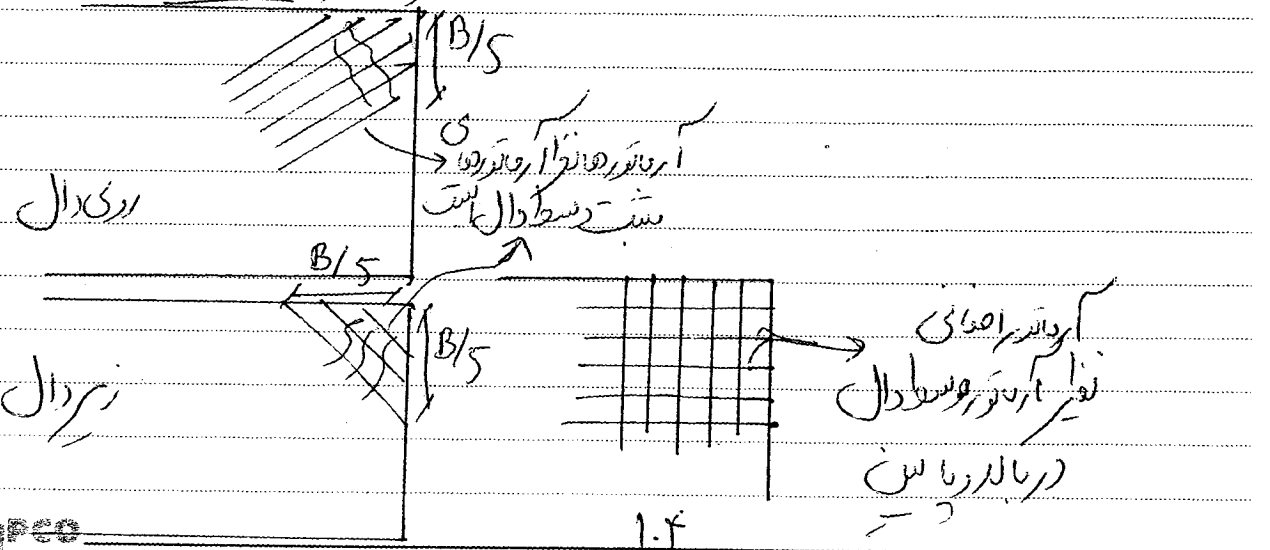 B/5
آرماتورها نظیر آرماتورهای
مثبت وسط دال است
روی دال
B/5
B/5
زیر دال
آرماتور اضافی
نظیر آرماتور وسط دال
در بالا و پایین
۱۰۴
PCO